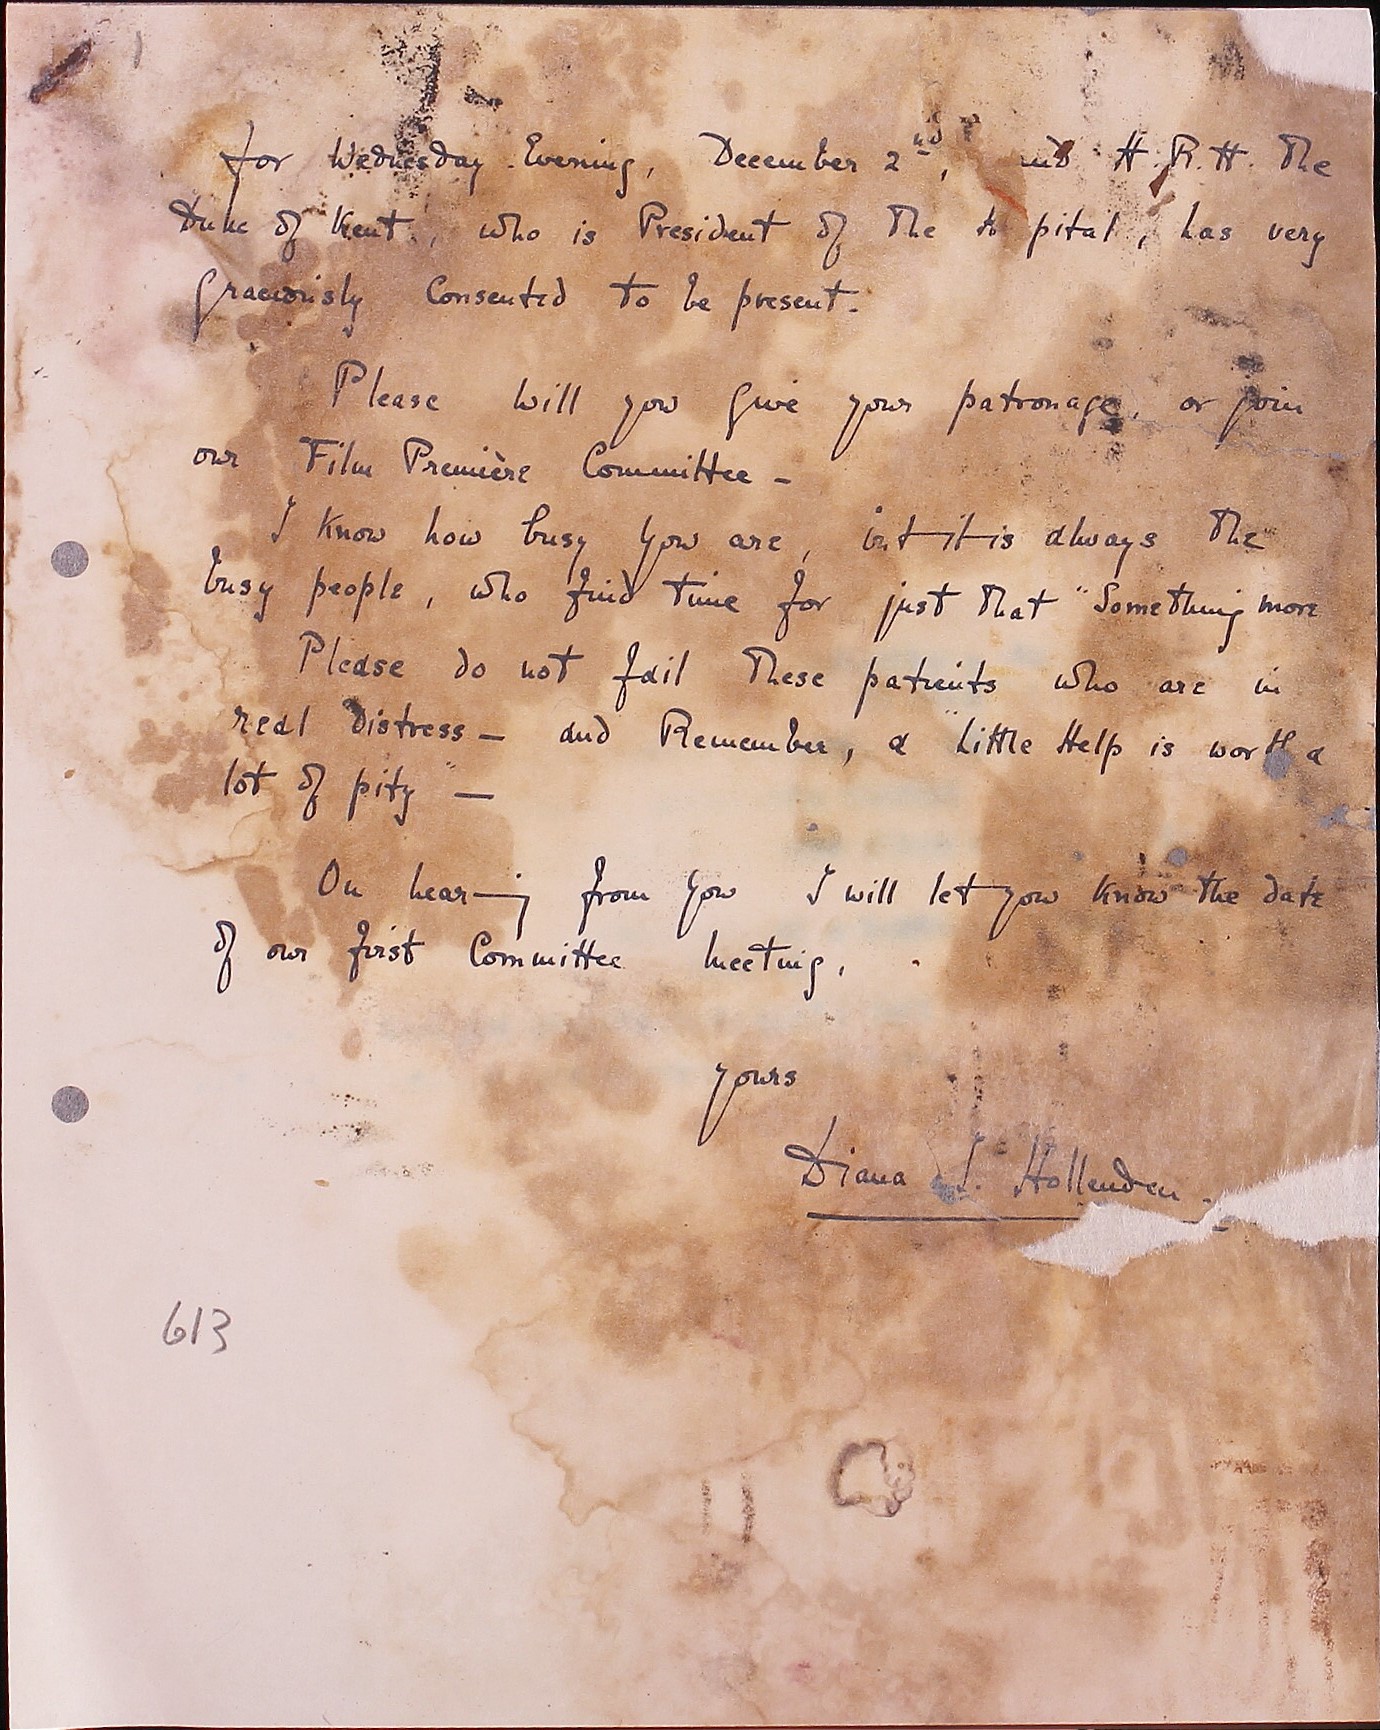 for Wednesday Evening, December 2nd, and H.R.H. The
Duke of Kent, who is President of The Hospital, has very
graciously Consented to be present.
Please will you give your patronage, or join
our Film Première Committee –
I know how busy you are, but it is always the
busy people, who find time for just that "Something more
Please do not fail These patients who are in
real Distress – and Remember, a "Little Help is worth a
lot of pity" –
On hearing from you I will let you know the date
of our first Committee meeting.
yours
Diana L. Hollenden.
613